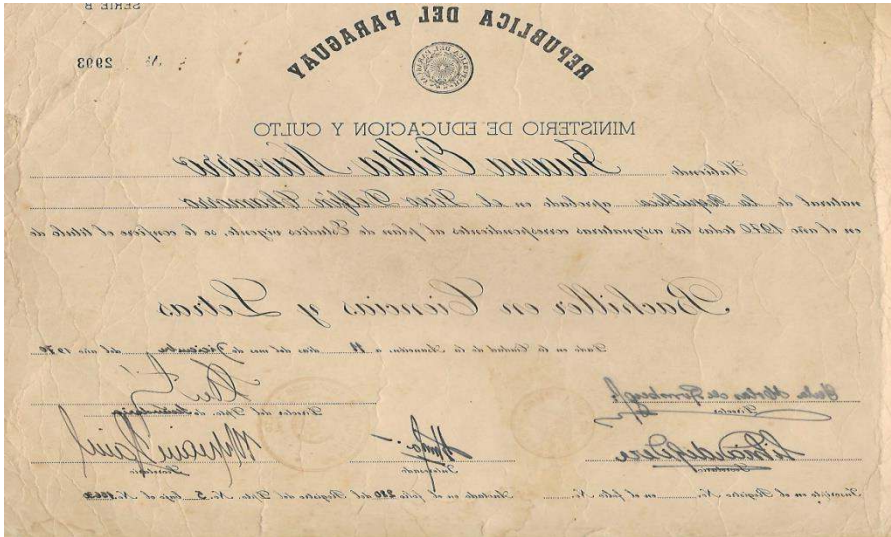 SERIE B
REPUBLICA DEL PARAGUAY
REPUBLICA DEL PARAGUAY
Nº 2993
MINISTERIO DE EDUCACION Y CULTO
Habiendo Juana Navarro
natural de la República aprobado en el Liceo Delfín Chamorro
en el año 1970 todas las asignaturas correspondientes al plan de Estudios vigente, se le confiere el título de
Bachiller en Ciencias y Letras
Dado en la Ciudad de la Asunción, a 11 días del mes de Diciembre del año 1970
Director Director del Dpto. de
Secretario Interesado Secretario
Inscripto en el Registro No. en el folio No. Anotado en el folio 210 del Registro del Dpto. No. 5 bajo el No.